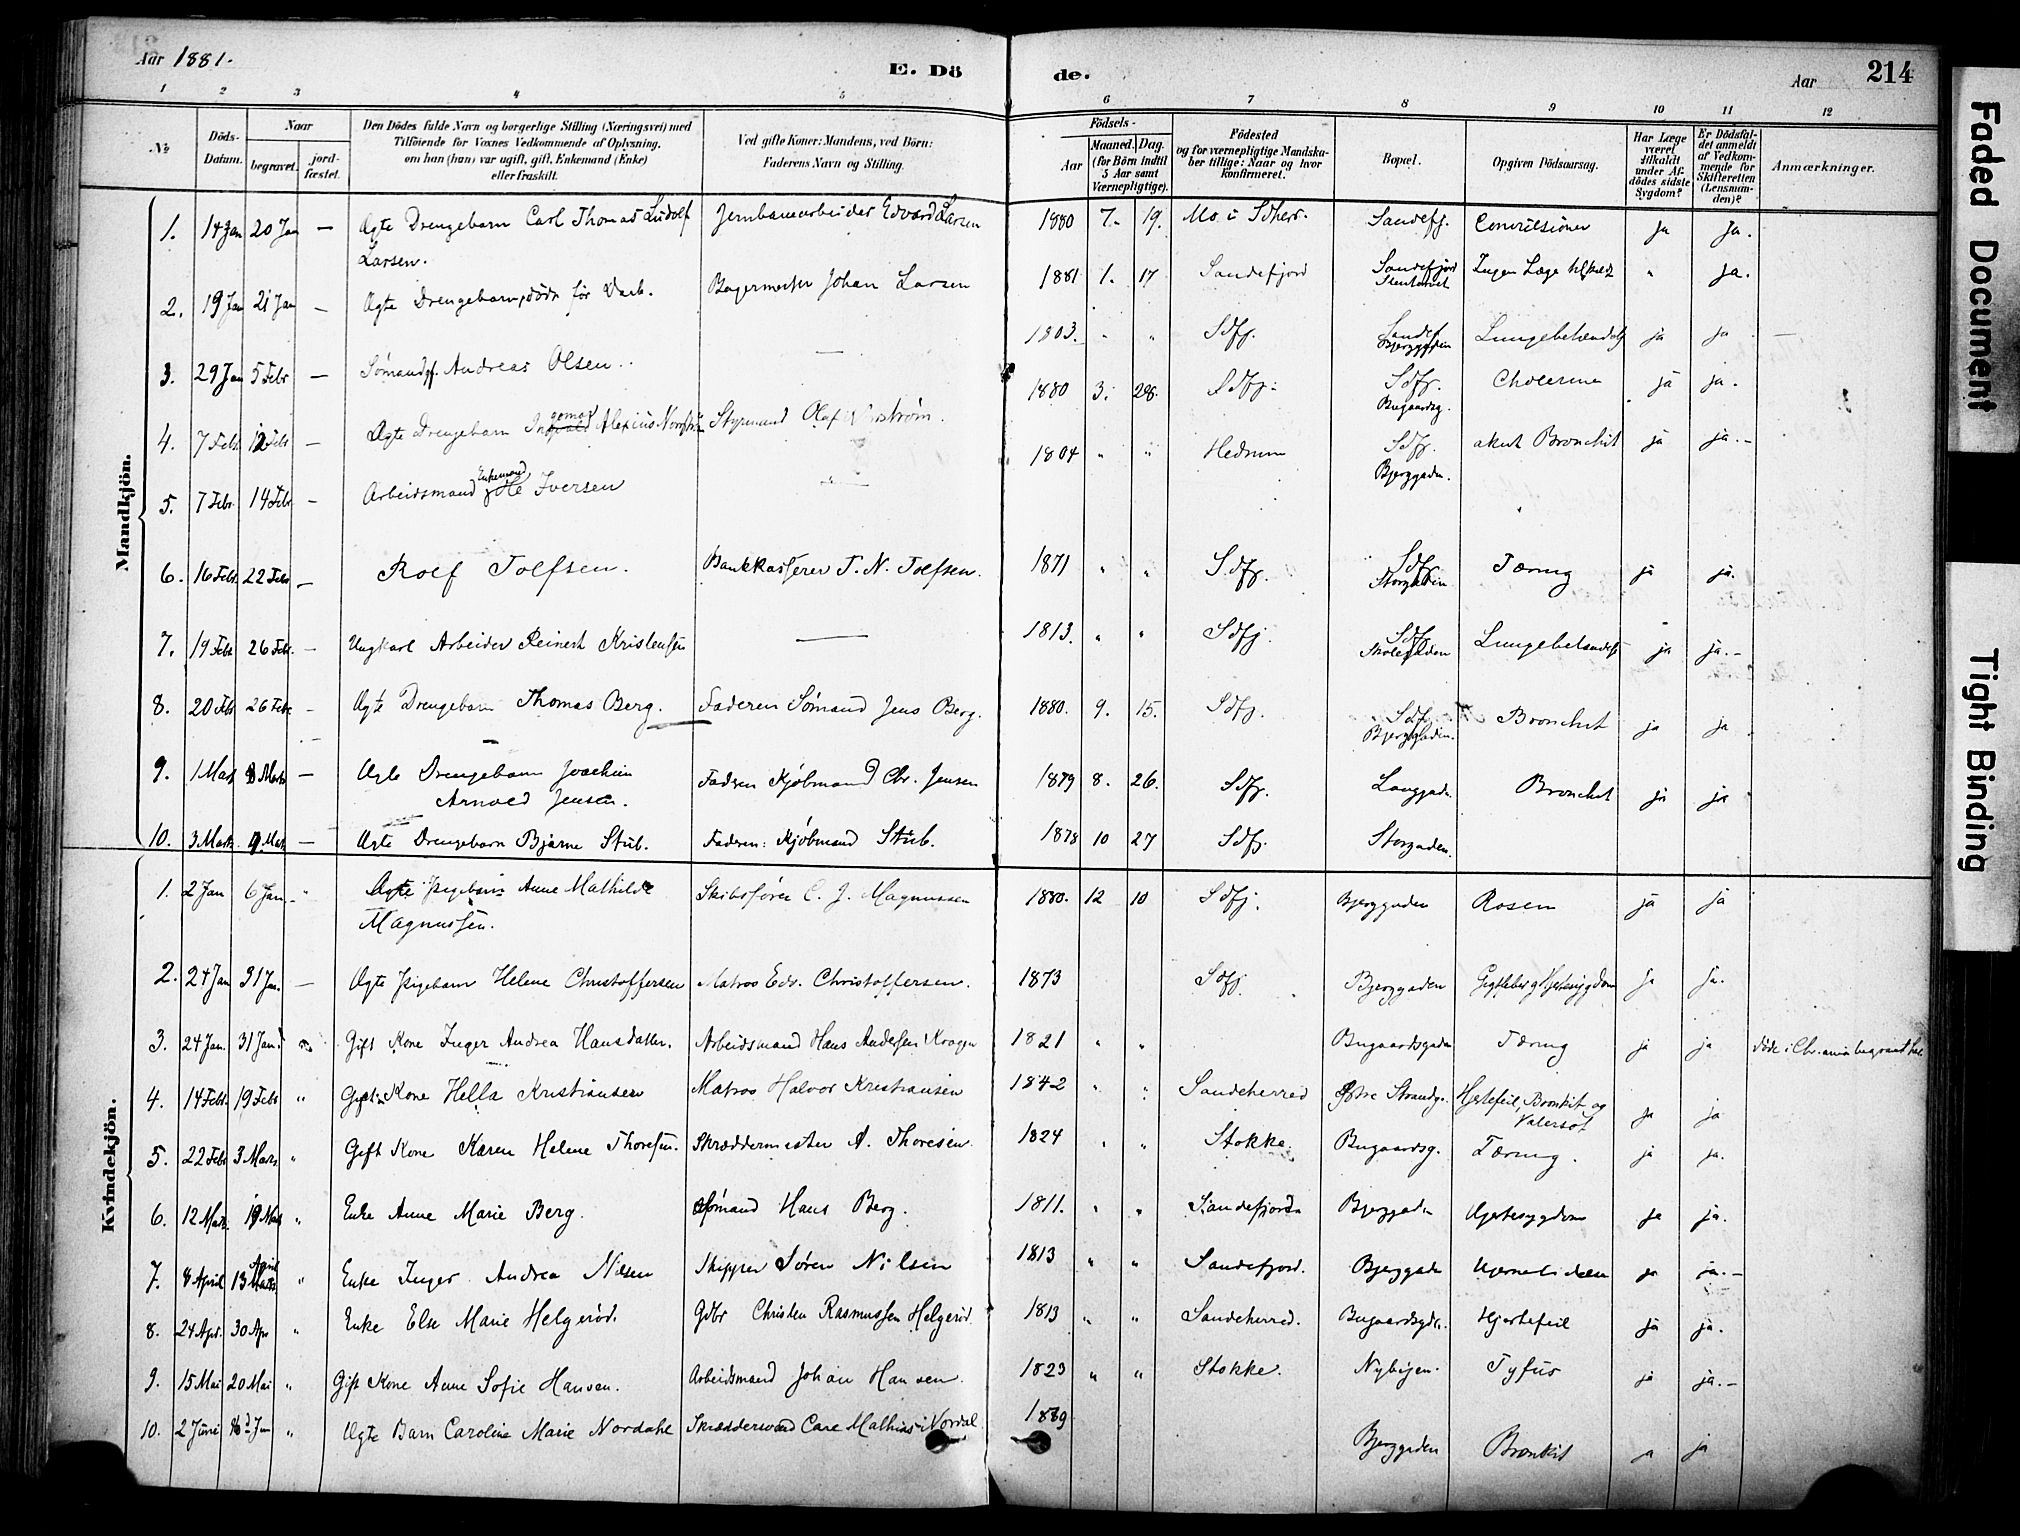 Aar 1881.
E. Döde.
Aar
214
1 2 3 4 5 6 7 8 9 10 11 12
No
Döds-Datum.
Naar begravet. jordfæstet.
Den Dödes fulde Navn og borgerlige Stilling (Næringsvei) med Tilföiende for Voxnes Vedkommende af Oplysning, om han (hun) var ugift, gift, Enkemand (Enke) eller fraskilt.
Ved gifte Koner: Mandens, ved Börn: Faderens Navn og Stilling.
Födsels-
Aar Maaned. Dag. (for Börn indtil 5 Aar samt Værnepligtige).
Födested og for værnepligtige Mandskaber tillige: Naar og hvor Konfirmeret.
Bopæl.
Opgiven Dödsaarsag.
Har Læge været tilkaldt under Afdödes sidste Sygdom?
Er Dödsfaldet anmeldt af Vedkommende for Skifteretten (Lensmanden)?
Anmærkninger.
Mandkjön.
1. 14 Jan 20 Jan — Ægte Drengebarn Carl Thomas Ludolf Larsen. Jernbanearbeider Edvard Larsen 1880 7. 19. Mo i Sdherr. Sandefj. Convulsioner ja ja.
2. 19 Jan 21 Jan — Ægte Drengebarn, døde før Daab. Bagermester Johan Larsen 1881 1. 17 Sandefjord Sandefjord Ingen Læge tilkaldt " ja.
3. 29 Jan 5 Febr — Sømand Andreas Olsen. — 1803. " " Sdfj. Sandef Bjerggaden Lungebetændelse ja ja —
4. 7 Febr. 12 Febr — Ægte Drengebarn Alexius Styrmand Olaf 1880 3. 28. Sdfj. Sdfj. Bugaardsg. Cholerine ja ja.
5. 7 Febr. 14 Febr — Arbeidsmand Enkemand Ole Iversen — 1804 " " Hedrum Sdfj. Bjerggaden. akut Bronchit ja ja.-
6. 16 Febr. 22 Febr — Rolf Tolfsen. Bankkasserer T. N. Tolfsen. 1871 " " Sdfj. Sdfj. Storgaden Tæring ja ja.
7. 19 Febr 26 Febr. — Ungkarl Arbeider Reinert Kristensen — 1813. " " Sdfj Sdfj. Skolegaden Lungebetændelse ja ja.-
8. 20 Febr 26 Febr — Ægte Drengebarn Thomas Berg. Faderen Sømand Jens Berg. 1880. 9. 15. Sdfj. Sdfj. Bjerggaden. Bronchit ja ja
9. 1 Mart 8 Marts — Ægte Drengebarn Joachim Arnold Jensen. Faderen Kjøbmand Chr. Jensen 1879 8. 26. Sdfj. Langgaden. Bronchit ja ja
10. 3 Marts 9. Mart — Ægte Drengebarn Bjarne Stub. Faderen: Kjøbmand Stub. 1878 10 27 Sdfj. Storgaden.
Kvindekjön.
1. 2 Jan 6 Jan. " Ægte Pigebarn Anne Mathilde Magnussen. Skibsfører C. J. Magnussen 1880. 12 10 Sdfj. Bjerggaden Rosen ja ja
2. 24 Jan 31 Jan. — Ægte Pigebarn Helene Christoffersen Matros Edv. Christoffersen. 1873 Sdfj. Bjerggaden Gigtfeber og Hjertesygdom ja ja.
3. 24 Jan. 31 Jan. Gift Kone Inger Andrea Hansdatter. Arbeidsmand Hans Andersen 1821 " " Bugaardsgaden Tæring ja ja døde i Chr.ania begravet her
4. 14 Febr. 19 Febr " Gift Kone Hella Kristiansen Matros Halvor Kristiansen 1842 " " Sandeherred Østre Strandg. Hjertefeil, Bronkit og Vatersot ja ja
5. 22 Febr 3 Marts " Gift Kone Karen Helene Thoresen. Skræddermester A. Thoresen. 1824 " " Stokke. Bugaardsg. Tæring. ja ja.
6. 12 Marts. 19 Mart " Enke Anne Marie Berg. Sømand Hans Berg. 1811. " " Sandefjord Bjerggaden Hjertesygdom ja ja.
7. 8 April 13 April " Enke Inger Andrea Nilsen Skipper Søren Nilsen 1813 " " Sandefjord. Bjerggaden ja ja.-
8. 24 Apr. 30 Apr " Enke Else Marie Helgerød. Gdbr Christen Rasmussen Helgerød 1813 " " Sandeherred. Bugaardsgdn. Hjertefeil ja ja.
9. 15 Mai 20 Mai " Gift Kone Anne Sofie Hansen. Arbeidsmand Johan Hansen. 1829 " " Stokke. Nybyen. Tyfus ja ja.-
10. 2 Juni Jun " Ægte Barn Caroline Marie Nordahl Carl Mathias Nordal Bjerggaden Bronkit ja ja
Faded Document
Tight Binding